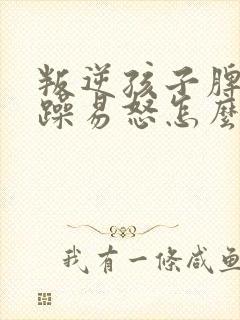 叛逆孩子脾
躁易怒怎麼
我有一條咸魚